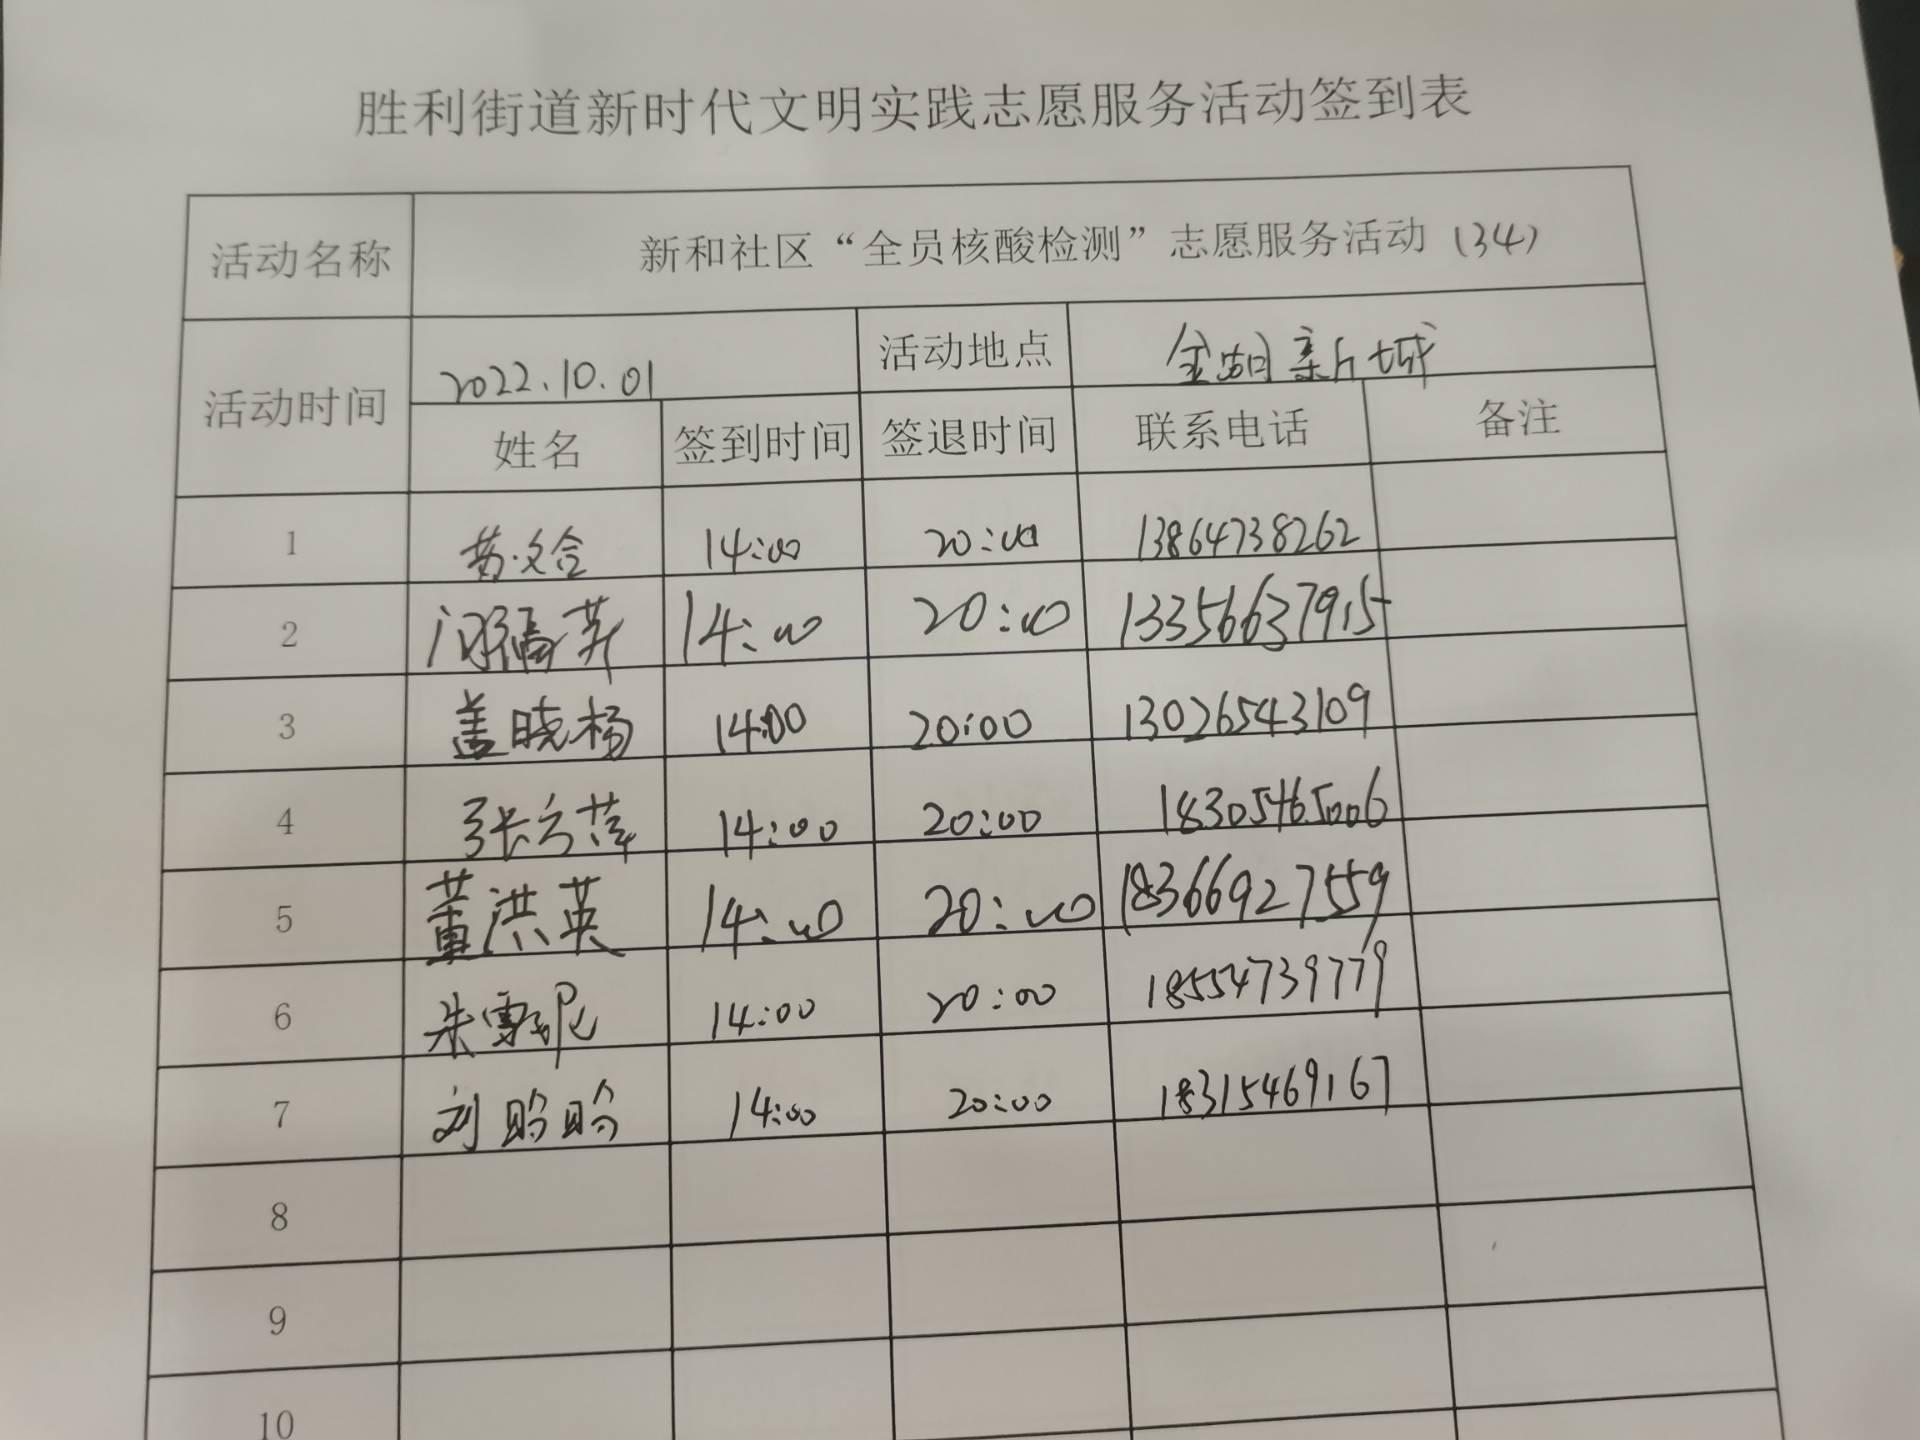 胜利街道新时代文明实践志愿服务活动签到表
活动名称 新和社区“全员核酸检测”志愿服务活动 (34)
活动时间 2022.10.01 活动地点 金湖新城
姓名 签到时间 签退时间 联系电话 备注
1 14:00 20:00 13864738262
2 14:00 20:00 13356637915
3 盖晓杨 14:00 20:00 13026543109
4 张方萍 14:00 20:00 18305465006
5 董洪英 14:00 20:00 18366927559
6 朱雪妮 14:00 20:00 18554739779
7 刘盼盼 14:00 20:00 18315469167
8
9
10